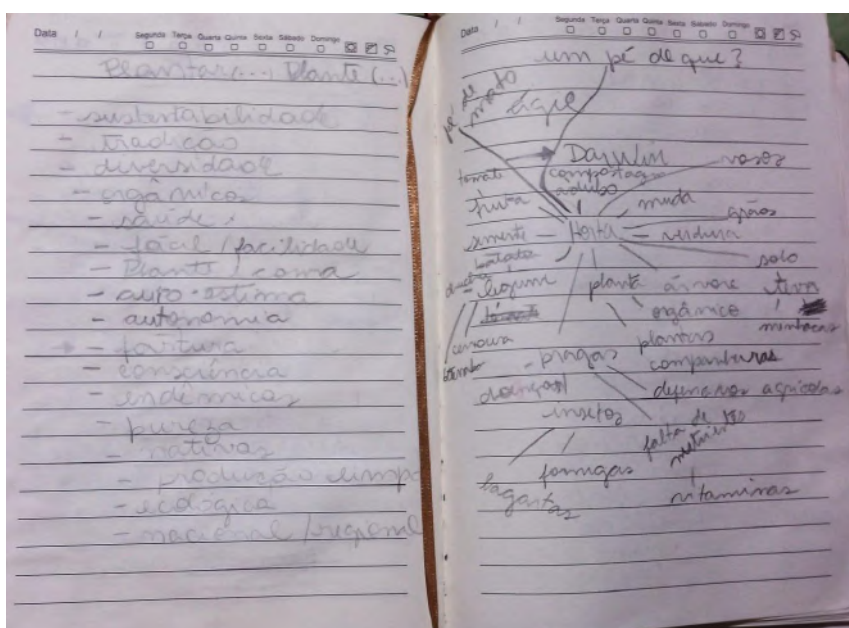 Data / / Segunda Terça Quarta Quinta Sexta Sábado Domingo
Plantar (...) Plante (...)
- sustentabilidade
- tradição
- diversidade
- orgânicos
- saúde
- fácil / facilidade
- Plante / coma
- auto-estima
- autonomia
- fartura
- consciência
- endêmicas
- pureza
- nativas
- produção limpa
- ecológica
- nacional / regional
Data / / Segunda Terça Quarta Quinta Sexta Sábado Domingo
um pé de que?
pé de mato
água
Darwin
vasos
tomate
compostagem
adubo
fruta
muda
grãos
semente - Horta - verdura
solo
batata
- legume
planta
árvore
terra
orgânico
minhocas
cenoura
plantas
companheiras
- pragas
doenças
defensivos agrícolas
insetos
falta de nutrientes
formigas
lagartas
vitaminas